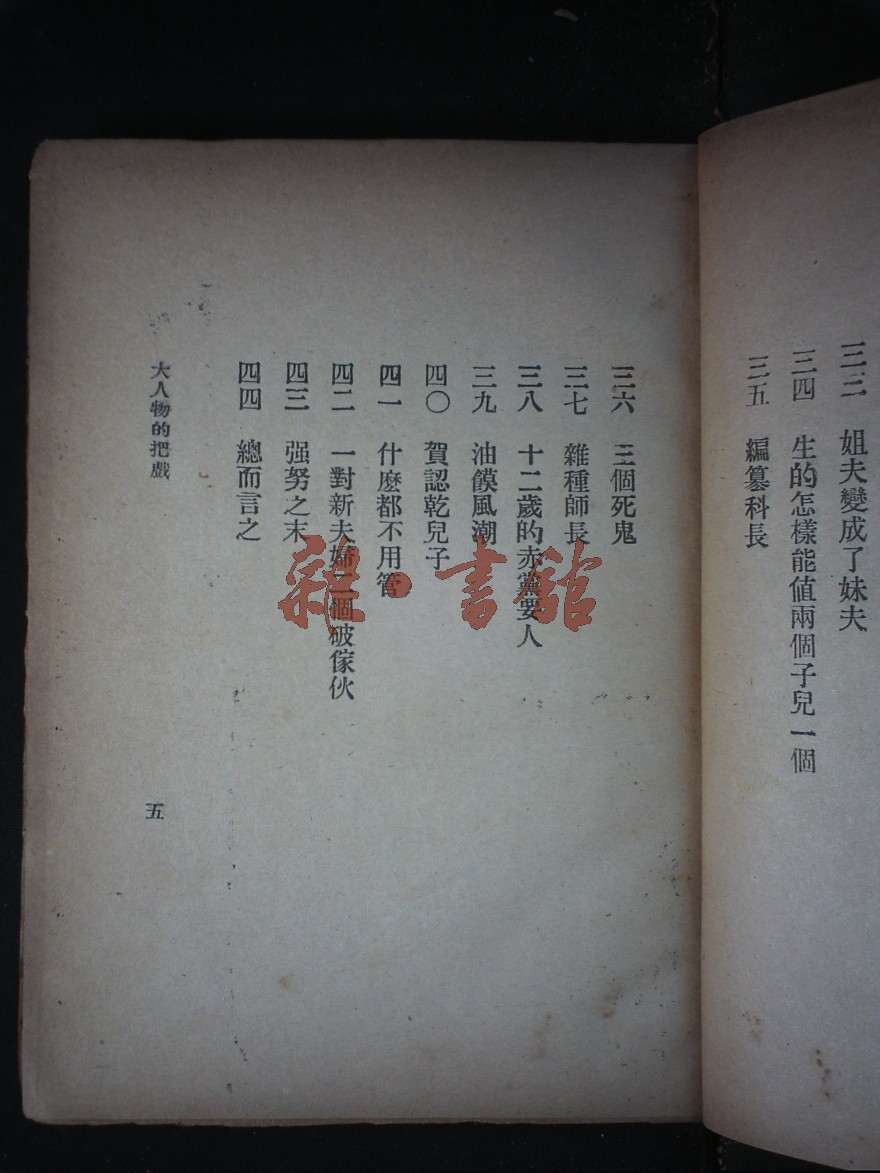 三三 姐夫變成了妹夫
三四 生的怎樣能值兩個子兒一個
三五 編纂科長
三六 三個死鬼
三七 雜種師長
三八 十二歲的赤黨要人
三九 油饃風潮
四〇 賀認乾兒子
四一 什麽都不用管
四二 一對新夫婦二個破傢伙
四三 强努之末
四四 總而言之
大人物的把戲
五
雜·書館